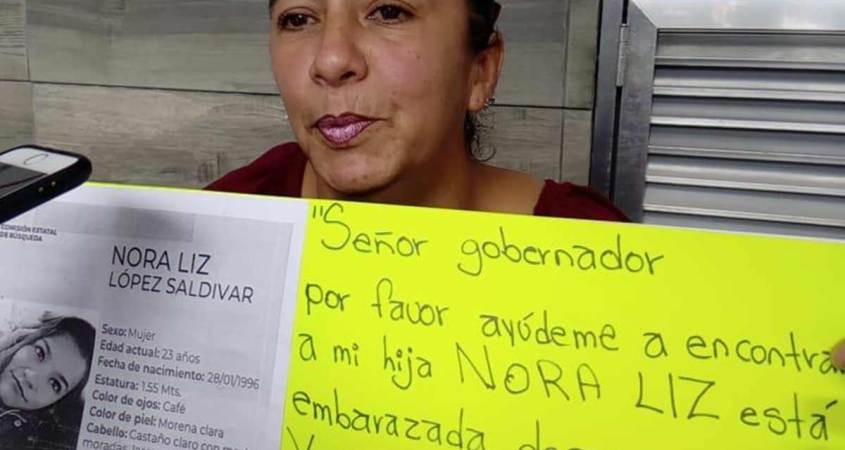 COMISIÓN ESTATAL
DE BÚSQUEDA
NORA LIZ
LÓPEZ SALDIVAR
Sexo: Mujer
Edad actual: 23 años
Fecha de nacimiento: 28/01/1996
Estatura: 1.55 Mts.
Color de ojos: Café
Color de piel: Morena clara
Cabello: Castaño claro con
moradas
"Señor gobernador
por favor ayúdeme a encontra
a mi hija NORA LIZ está
embarazada